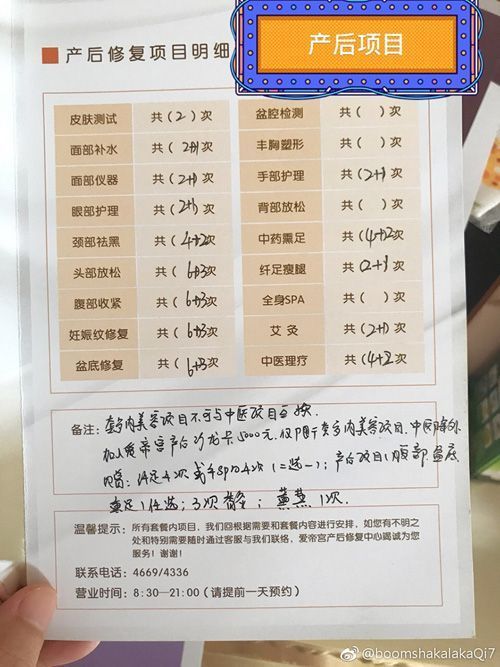 产后修复项目明细
产后项目
皮肤测试 共(2)次 盆腔检测 共( )次
面部补水 共(2+1)次 丰胸塑形 共( )次
面部仪器 共(2+1)次 手部护理 共(2+1)次
眼部护理 共(2+1)次 背部放松 共( )次
颈部祛黑 共(4+2)次 中药熏足 共(4+2)次
头部放松 共(6+3)次 纤足瘦腿 共(2+1)次
腹部收紧 共(6+3)次 全身SPA 共( )次
妊娠纹修复 共(6+3)次 艾灸 共(2+1)次
盆底修复 共(6+3)次 中医理疗 共(4+2)次
备注：套餐内美容项目不可与中医项目互换.
加入爱帝宫产后 沙龙卡5000元,仅限于套餐内美容项目,中医除外
4次 或 4次(二选一);产后项目:腹部 盆底
任选;3次 ; 熏蒸 1次.
温馨提示：所有套餐内项目，我们回根据需要和套餐内容进行安排，如您有不明之
处和特别需要随时通过客服与我们联络，爱帝宫产后修复中心竭诚为您
服务！谢谢！
联系电话：4669/4336
营业时间：8:30—21:00（请提前一天预约）
@boomshakalakaQi7